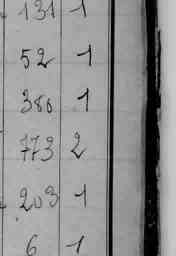 131 1
52 1
380 1
773 2
203 1
6 1